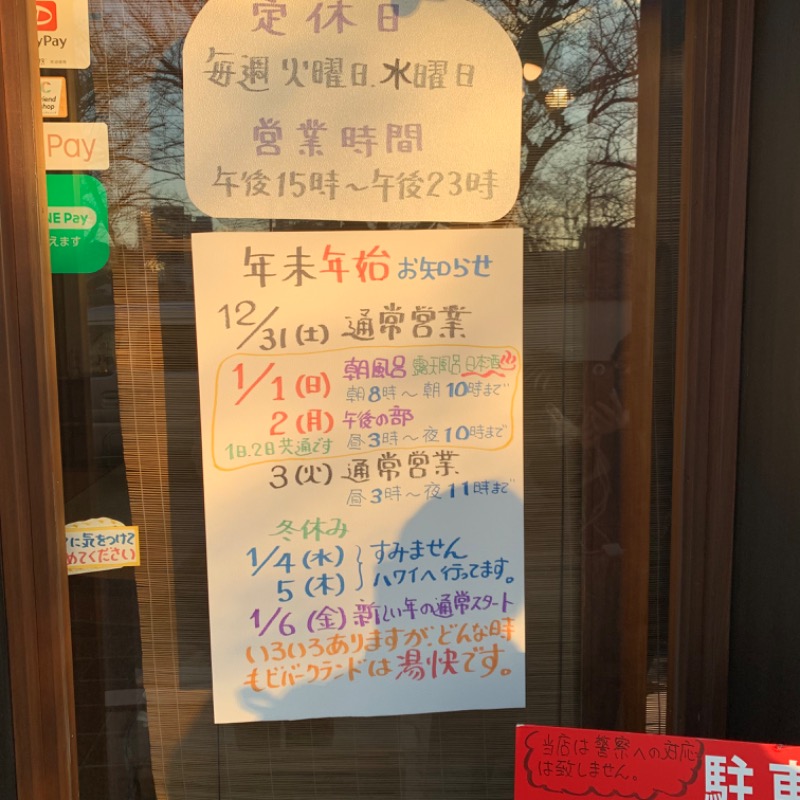 定休日
毎週火曜日.水曜日
営業時間
午後15時～午後23時
yPay
Pay
NE Pay
えます
年末年始お知らせ
12/31(土)通常営業
1/1(日)朝風呂 露天風呂日本酒♨
朝8時～朝10時まで
2(月)午後の部
1日.2日共通です 昼3時～夜10時まで
3(火)通常営業
昼3時～夜11時まで
冬休み
1/4(水)すみません
5(木)ハワイへ行ってます。
1/6(金)新しい年の通常スタート
いろいろありますが、どんな時
もビバークランドは湯快です。
に気をつけて
めてください
当店は警察への対応
は致しません。
駐車